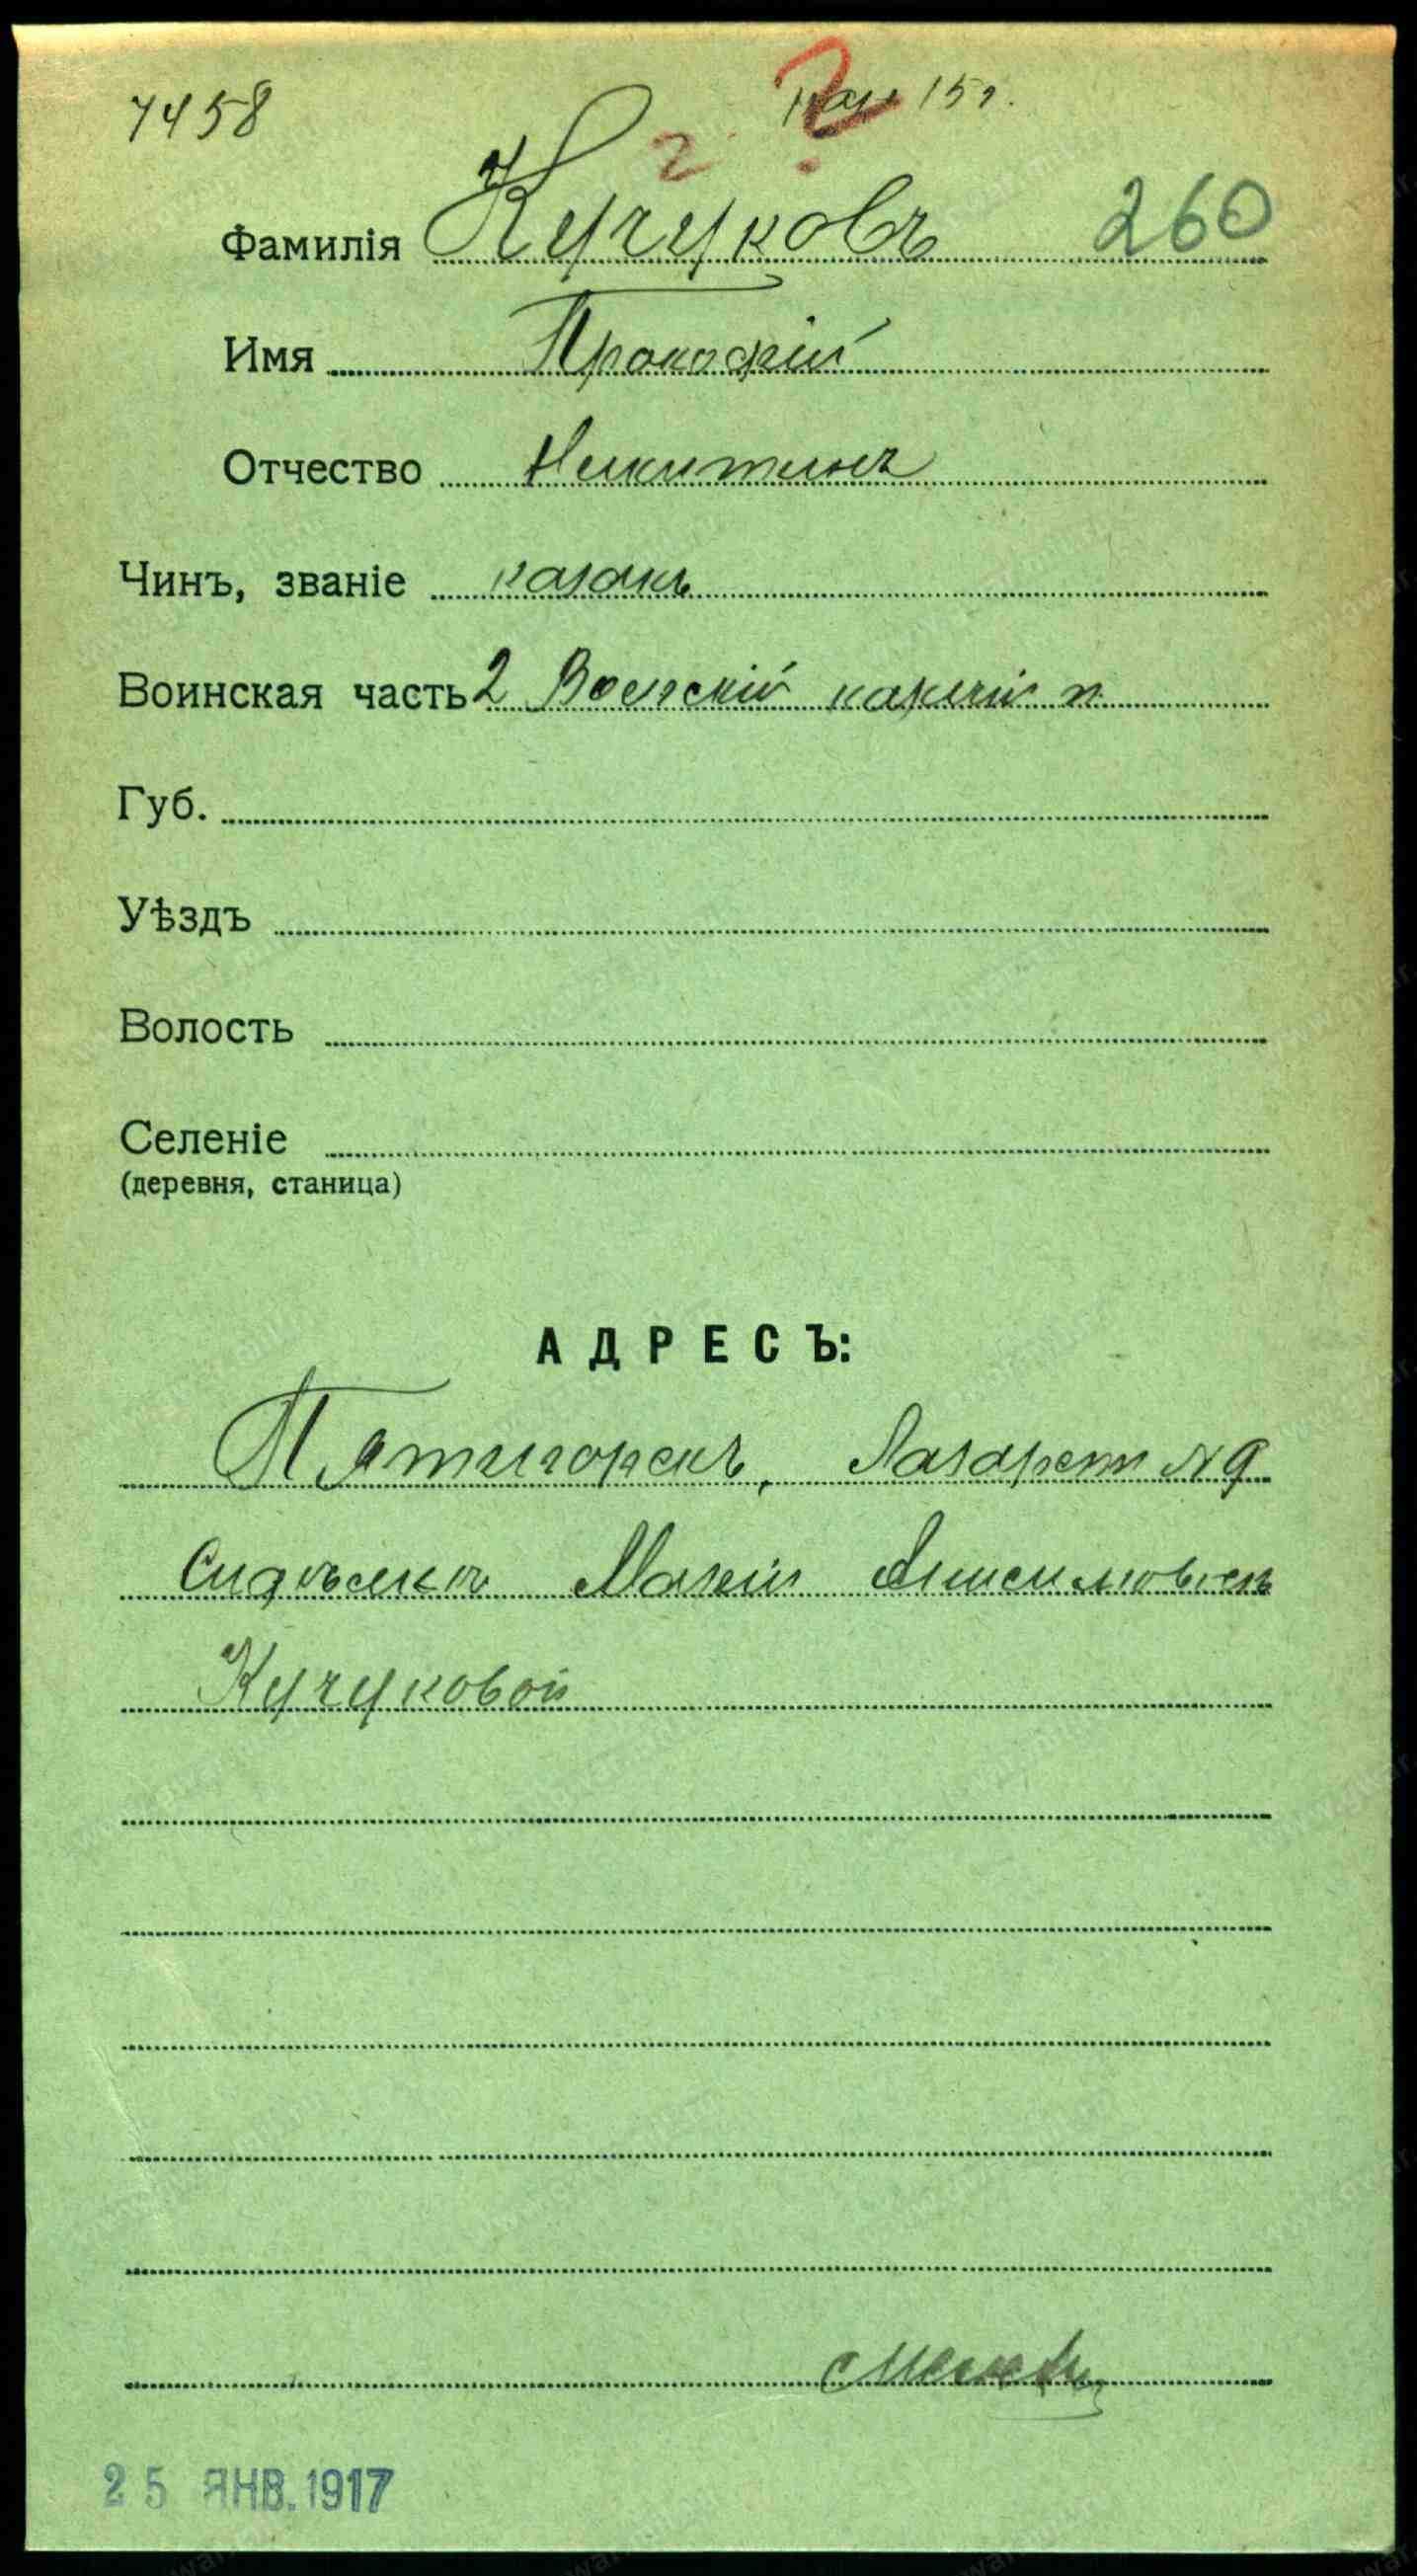 7458
15 г.
260
Фамилія Кучуковъ
Имя Прокофій
Отчество Никитинъ
Чинъ, званіе казакъ
Воинская часть 2 Волгскій казачій п.
Губ.
Уѣздъ
Волость
Селеніе
(деревня, станица)
АДРЕСЪ:
Пятигорскъ, Лазаретъ № 9
Сидѣлкѣ Маріи Анисимовнѣ
Кучуковой
25 ЯНВ. 1917